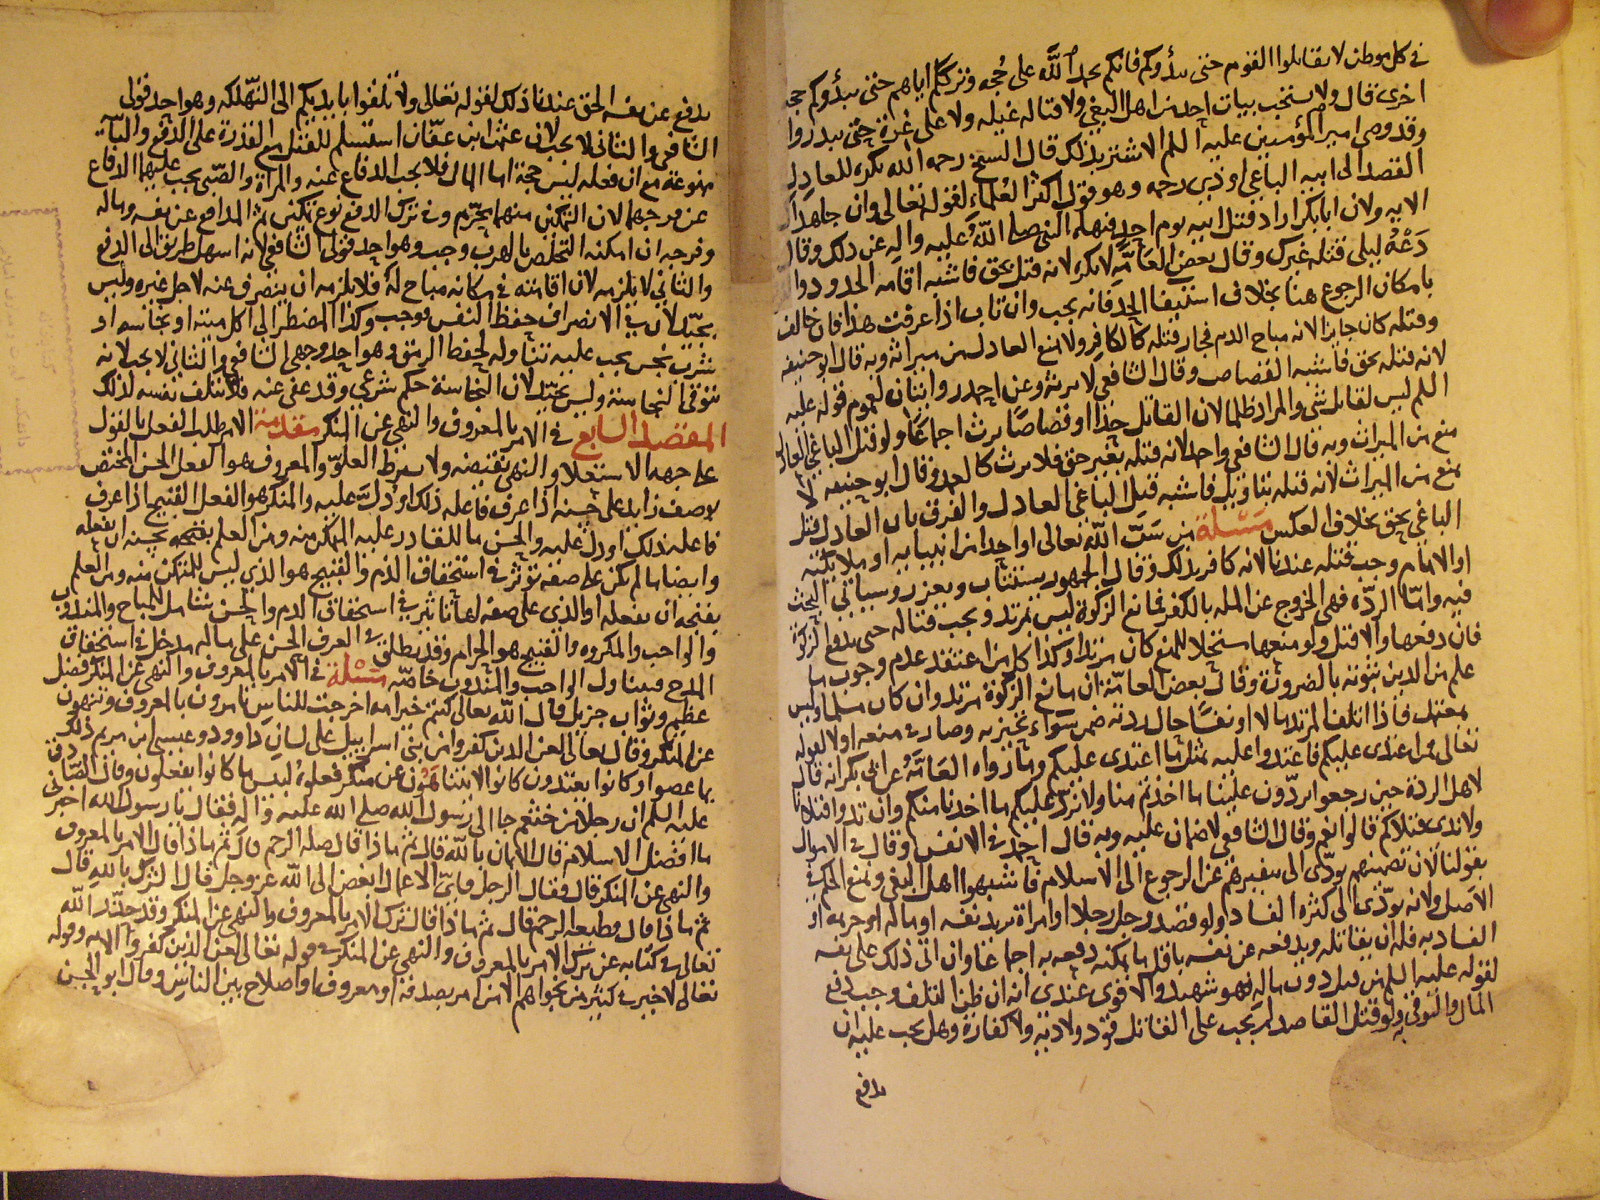 في كل موطن لا تقاتلوا القوم حتى يبدؤوكم فانكم بحمد الله على حجه وترككم اياهم حتى يبدؤكم حجه
اخرى قال ولا يستحب بيات احد من اهل البغي ولا قتاله غيله ولا على غرة حتى يبدروا
وقد وصى امير المؤمنين عليه السلم الاشتر بذلك قال الشيخ رحمه الله يكره للعادل
القصد الى ابيه الباغي او ذي رحمه وهو قول اكثر العلماء لقوله تعالى وان جاهداك
الايه ولان ابا بكر اراد قتل ابيه يوم احد فنهاه النبي صلى الله عليه واله عن ذلك وقال
دعه ليلى قتله غيرك وقال بعض العامة لا يكره لانه قتل بحق فاشبه اقامه الحدود
بامكان الرجوع هنا بخلاف استيفا الحد فانه يجب وان تاب اذا عرفت هذا فان خالف
وقتله كان جايزا لانه مباح الدم فجاز قتله كالكافر ولا يمنع العادل من ميراثه وبه قال ابو حنيفه
لانه قتله بحق فاشبه القصاص وقال الشافعي لا يرثه وعن احمد روايتان لعموم قوله عليه
السلم ليس لقاتل شي والمراد ظلما لان القاتل حدا او قصاصا يرث اجماعا ولو قتل الباغي العادل
منع من الميراث وبه قال الشافعي واحمد لانه قتله بغير حق فلا يرث كالعمد وقال ابو حنيفه لا
يمنع من الميراث لانه قتله بتاويل فاشبه قتل الباغي العادل والفرق بان العادل قتل
الباغي بحق بخلاف العكس مسئلة من سب الله تعالى او احدا من انبيايه او ملايكته
او الامام وجب قتله عندنا لانه كافر بذلك وقال الجمهور يستتاب ويعزر وسياتي البحث
فيه واما الردة فهي الخروج عن المله بالكفر فمانع الزكوة ليس بمرتد ويجب قتاله حتى يدفع الزكوة
فان دفعها والا قتل ولو منعها مستحلا للمنع كان مرتدا وكذا كل من اعتقد عدم وجوب ما
علم من الدين ثبوته بالضرورة وقال بعض العامة ان مانع الزكوة مرتد وان كان مسلما وليس
بمعتمد فاذا اتلف المرتد مالا او نفسا حال ردته ضمن سواء تحيز به وصار في منعه اولا لقوله
تعالى فمن اعتدى عليكم فاعتدوا عليه بمثل ما اعتدى عليكم وما رواه العامه عن ابي بكر انه قال
لاهل الردة حين رجعوا تردون علينا ما اخذتم منا ولا نرد عليكم ما اخذنا منكم وان تدوا قتلانا
ولا ندي قتلاكم قالوا نعم وقال الشافعي لا ضمان عليه وبه قال احمد في الانفس وقال في الاموال
بقولنا لان تضمينهم يؤدى الى تنفيرهم عن الرجوع الى الاسلام فاشبهوا اهل البغي ونمنع الحكم في
الاصل ولانه يؤدى الى كثرة الفساد ولو قصد رجل رجلا او امراة يريد نفسه او ماله او حريمه او
الفساد به فله ان يقاتله ويدفعه عن نفسه باقل ما يمكنه دفعه به اجماعا وان اتى ذلك على نفسه
لقوله عليه السلم من قتل دون ماله فهو شهيد والاقوى عندي انه ان ظن التلف وجب دفع
المال والتوقي به ولو قتل القاصد لم يجب على القاتل قود ولا دية ولا كفارة وهل يجب عليه ان
يدافع
يدفع عن نفسه الحق عندنا ذلك لقوله تعالى ولا تلقوا بايديكم الى التهلكه وهو احد قولي
الشافعي والثاني لا يجب لان عثمان بن عفان استسلم للقتل مع القدرة على الدفع والمقدمة
ممنوعة مع ان فعله ليس حجة اما المال فلا يجب الدفاع عنه والمراة والصبي يجب عليهما الدفاع
عن فرجهما لان التمكين منهما محرم وفي ترك الدفع نوع تمكين ثم المدافع عن نفسه وماله
وفرجه ان امكنه التخلص بالهرب وجب وهو احد قولي الشافعي لانه اسهل طريق الى الدفع
والثاني لا يلزمه لان اقامته في مكانه مباح له فلا يلزمه ان ينصرف عنه لاجل غيره وليس
بجيد لان في الانصراف حفظ النفس فوجب وكذا المضطر الى اكل ميتة او نجاسه او
شرب نجس يجب عليه تناوله لحفظ الرمق وهو احد وجهي الشافعي والثاني لا يجب لانه
توقى النجاسة وليس بجيد لان النجاسة حكم شرعي وقد عفي عنه فلا يتلف نفسه لذلك
المقصد السابع في الامر بالمعروف والنهي عن المنكر مقدمة الامر طلب الفعل بالقول
على جهه الاستعلا والنهي نقيضه ولا يشترط العلو والمعروف هو الفعل الحسن المختص
بوصف زايد على حسنه اذا عرف فاعله ذلك او دل عليه والمنكر هو الفعل القبيح اذا عرف
فاعله ذلك او دل عليه والحسن ما للقادر عليه المتمكن منه ومن العلم بقبحه يحسنه ان يفعله
وايضا ما لم يكن على صفة تؤثر في استحقاق الذم والقبيح هو الذي ليس للمتمكن منه ومن العلم
بقبحه ان يفعله او الذي على صفه لها تاثير في استحقاق الذم والحسن شامل للمباح والمندوب
والواجب والمكروه والقبيح هو الحرام وقد يطلق في العرف الحسن على ما له مدخل في استحقاق
المدح فيتناول الواجب والمندوب خاصه مسئلة في الامر بالمعروف والنهي عن المنكر فضل
عظيم وثواب جزيل قال الله تعالى كنتم خير امه اخرجت للناس تامرون بالمعروف وتنهون
عن المنكر وقال تعالى لعن الذين كفروا من بني اسراييل على لسان داوود وعيسى ابن مريم ذلك
بما عصوا وكانوا يعتدون كانوا لا يتناهون عن منكر فعلوه لبيس ما كانوا يفعلون وقال الصادق
عليه السلم ان رجلا من خثعم جا الى رسول الله صلى الله عليه واله فقال يا رسول الله اخبرني
ما افضل الاسلام قال الايمان بالله قال ثم ماذا قال صله الرحم قال ثم ماذا قال الامر بالمعروف
والنهي عن المنكر قال فقال الرجل فايّ الاعمال ابغض الى الله عز وجل قال الشرك بالله قال
ثم ماذا قال قطيعه الرحم قال ثم ماذا قال ترك الامر بالمعروف والنهي عن المنكر وقد حذر الله
تعالى في كتابه عن ترك الامر بالمعروف والنهي عن المنكر في قوله تعالى لعن الذين كفروا الايه وقوله
تعالى لا خير في كثير من نجواهم الا من امر بصدقة او معروف او اصلاح بين الناس وقال ابو الحسن